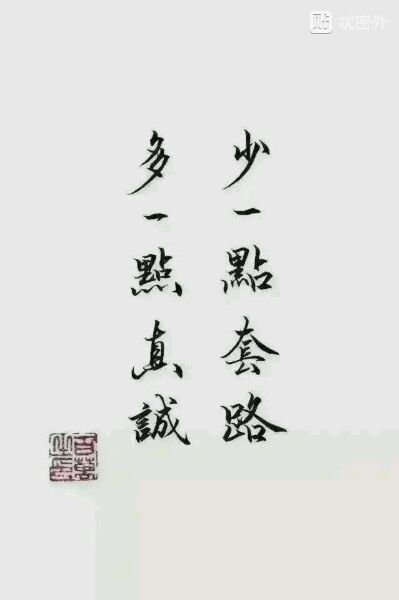 少一點套路
多一點真誠
貼 忒密外